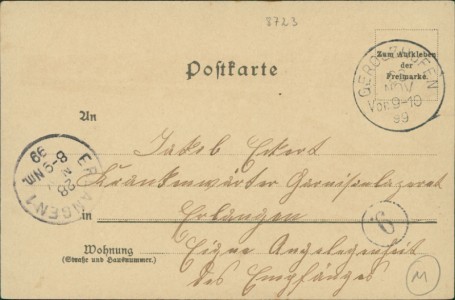 8723
Zum Aufkleben
der
Freimarke.
Postkarte
GEROLZHOFEN
NOV
Vor 9-10
99
An
Jakob Eckert
Krankenwärter Garnisonlazaret
in Erlangen
ERLANGEN 1
28
8-9 Nm.
99
6
Wohnung
(Straße und Hausnummer.)
Eigne Angelegenheit
des Empfängers
M